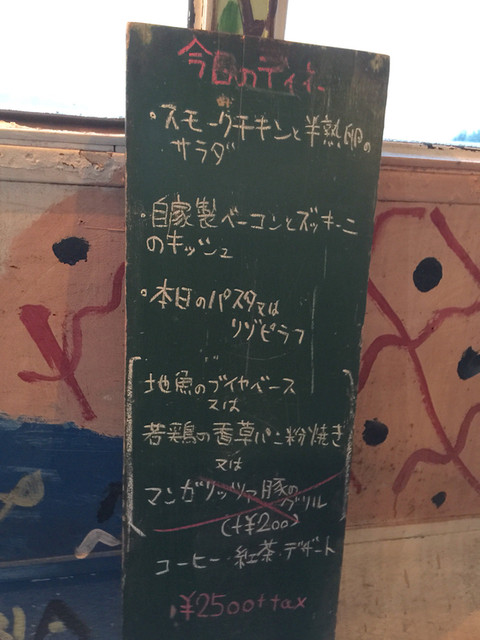 今日のディナー
・スモークチキンと半熟卵の
サラダ
・自家製ベーコンとズッキーニ
のキッシュ
・本日のパスタ又は
リゾピラフ
地魚のブイヤベース
又は
若鶏の香草パン粉焼き
又は
マンガリッツァ豚の
グリル
(+¥200)
コーヒー・紅茶・デザート
¥2500+tax